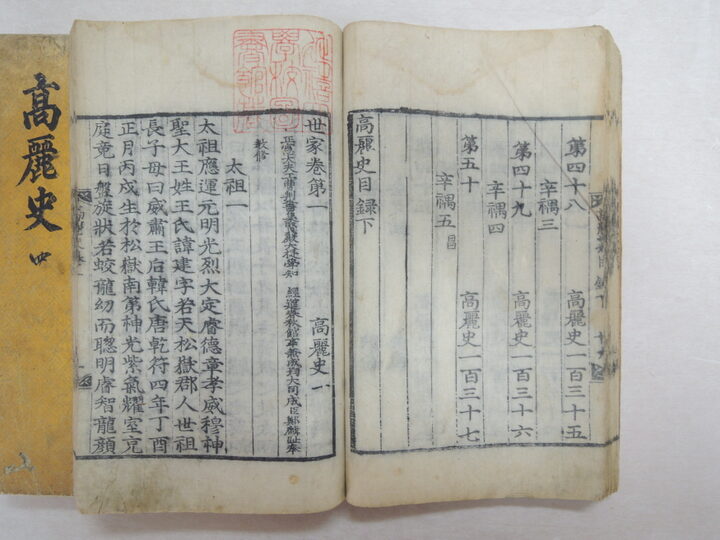 第四十八 高麗史一百三十五
辛禑三
第四十九 高麗史一百三十六
辛禑四
第五十 高麗史一百三十七
辛禑五 昌
高麗史目録下
世家卷第一 高麗史一
正憲大夫工曹判書集賢殿大提學知 經筵春秋館事兼成均大司成臣鄭麟趾奉
教修
太祖一
太祖應運元明光烈大定睿德章孝威穆神
聖大王姓王氏諱建字若天松嶽郡人世祖
長子母曰威肅王后韓氏唐乾符四年丁酉
正月丙戌生於松嶽南第神光紫氣耀室充
庭竟日盤旋狀若蛟龍幼而聰明睿智龍顔
高麗史 四